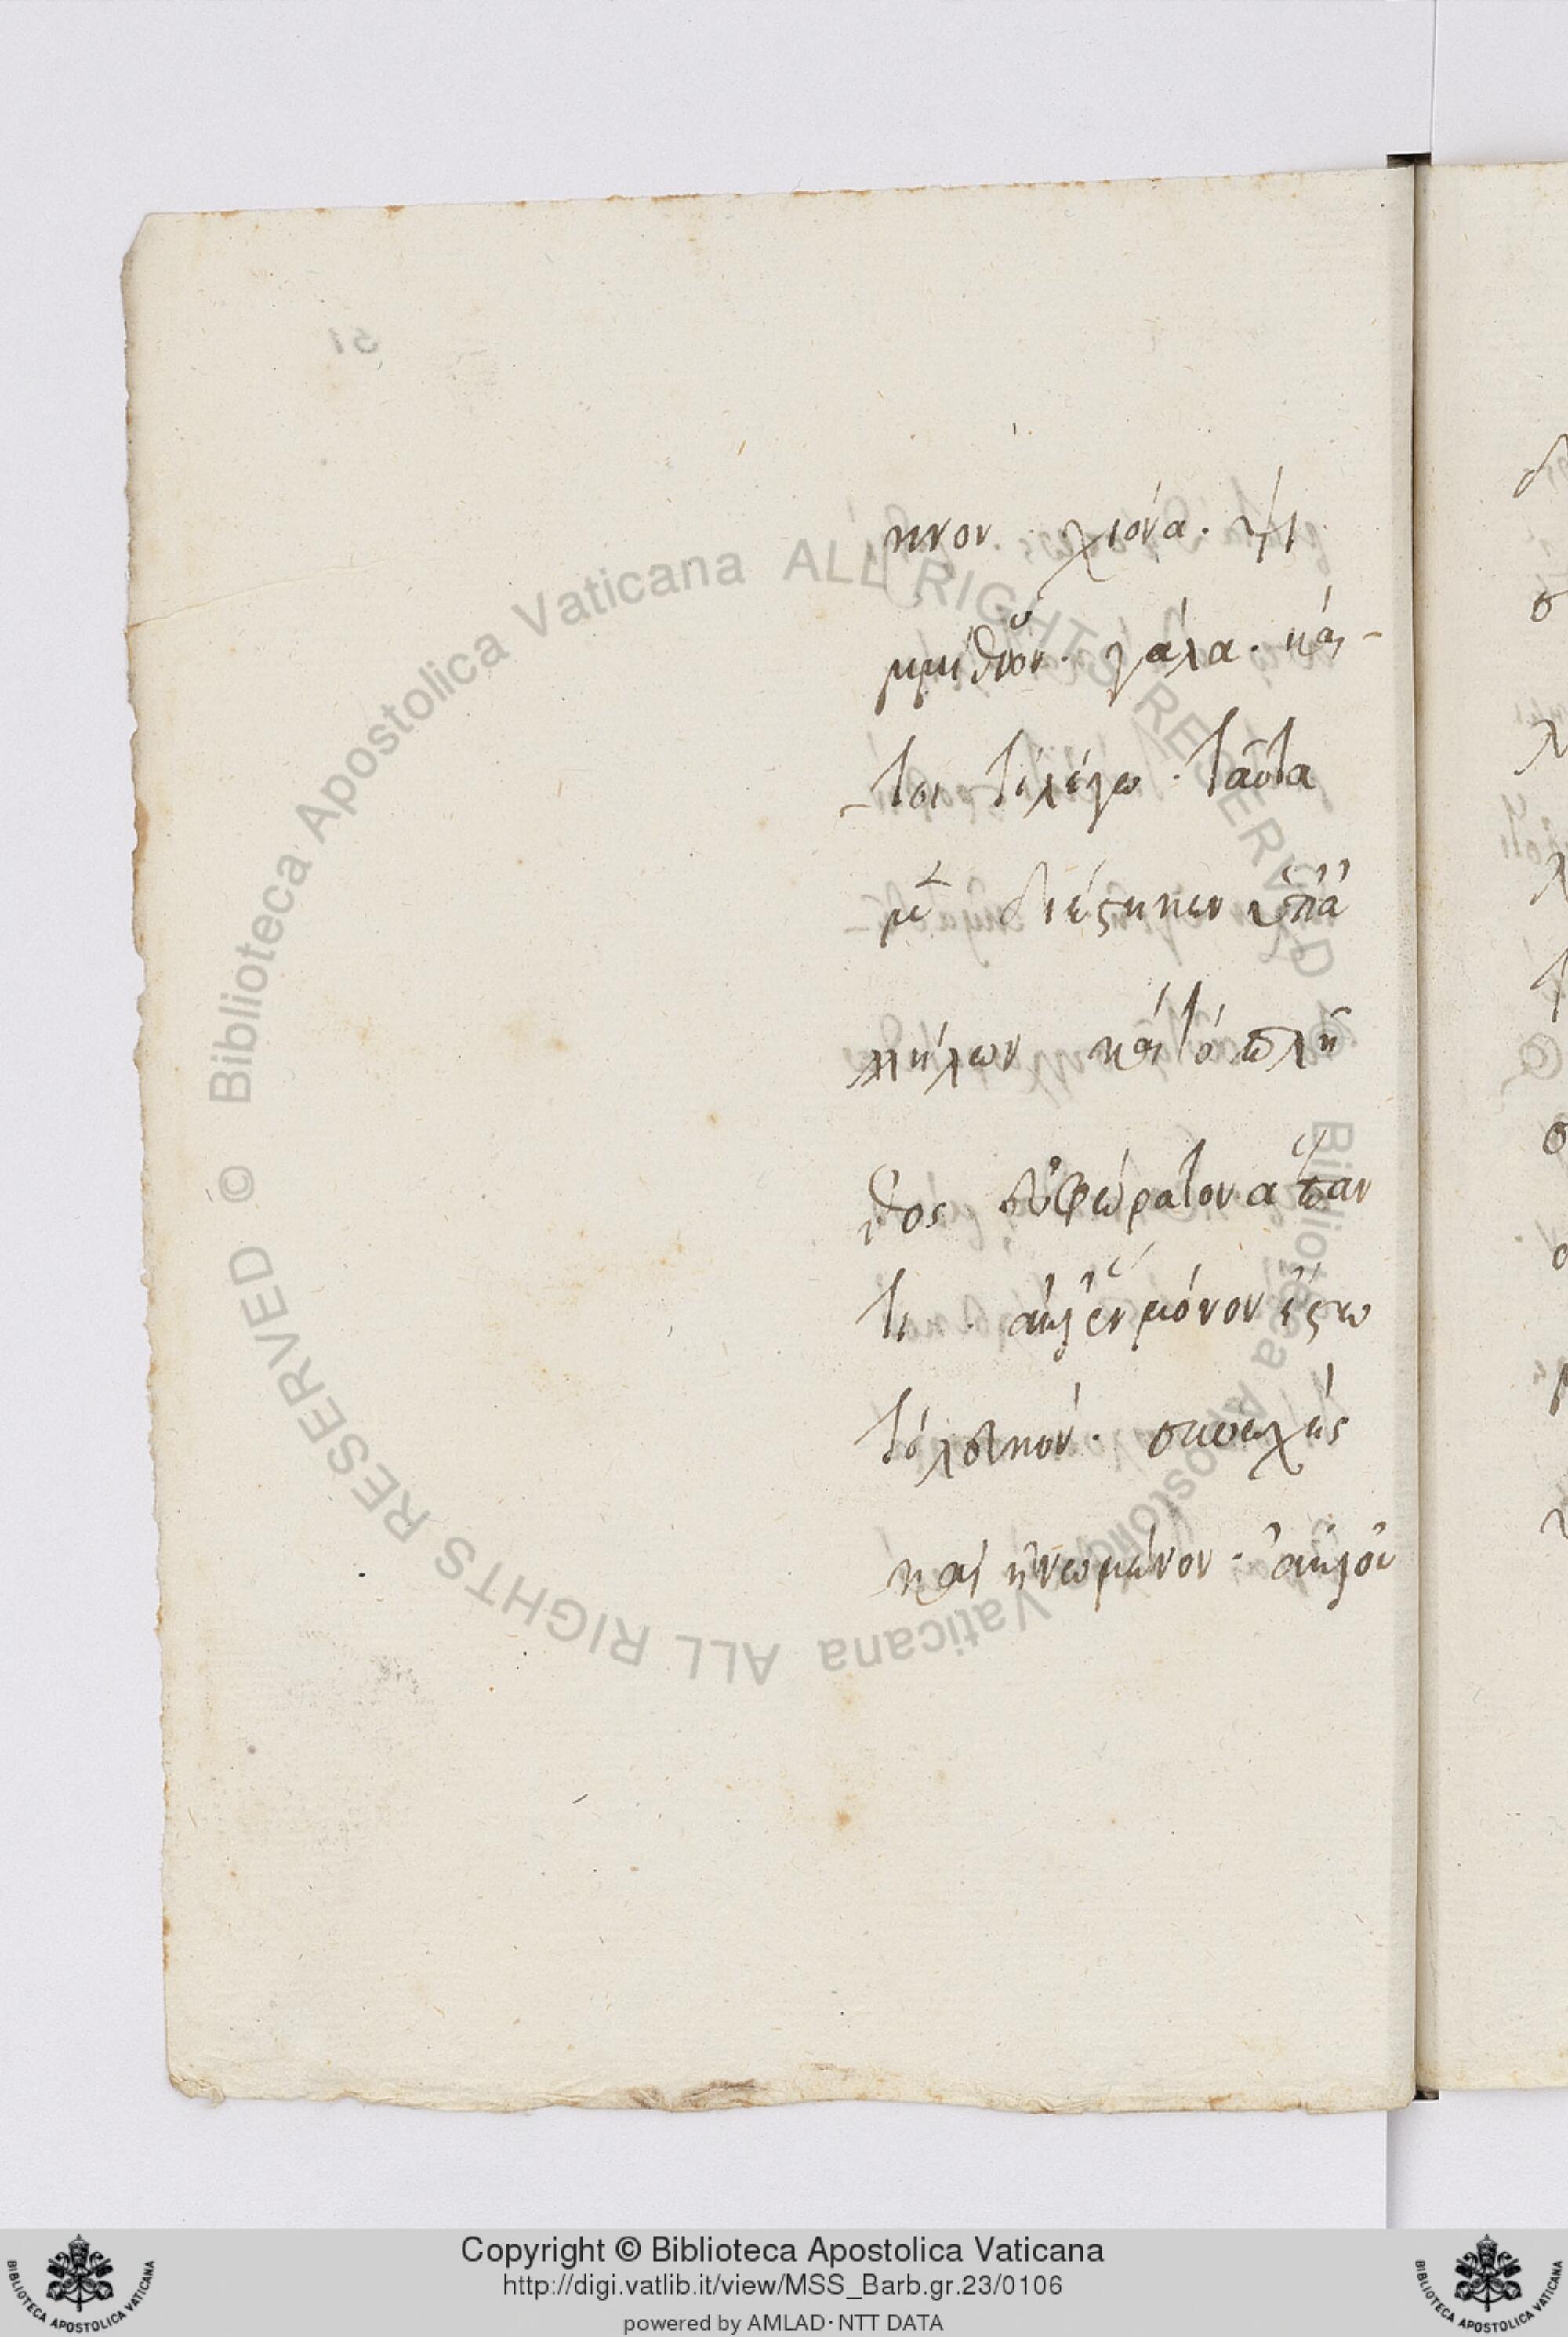 κνον. χιόνα. ψι
μμίθιον. γάλα. καί
τοι τί λέγω. ταῦτα
μὲν διέστηκεν ἀπ' ἀ
λλήλων καὶ τὸ πλῆ
θος εὐφώρατον ἅπαν
τι. ἀλλ' ἓν μόνον ἔστω
τὸ λευκόν. συνεχὲς
καὶ ἡνωμένον. ἀλλ' οὐ
51
Biblioteca Apostolica Vaticana ALL RIGHTS RESERVED ©
Biblioteca Apostolica Vaticana ALL RIGHTS RESERVED ©
Copyright © Biblioteca Apostolica Vaticana
http://digi.vatlib.it/view/MSS_Barb.gr.23/0106
powered by AMLAD · NTT DATA
BIBLIOTECA APOSTOLICA VATICANA
BIBLIOTECA APOSTOLICA VATICANA